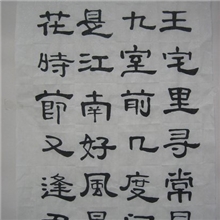 王宅里寻常
九堂前几度
是江南好風
花時節又逢